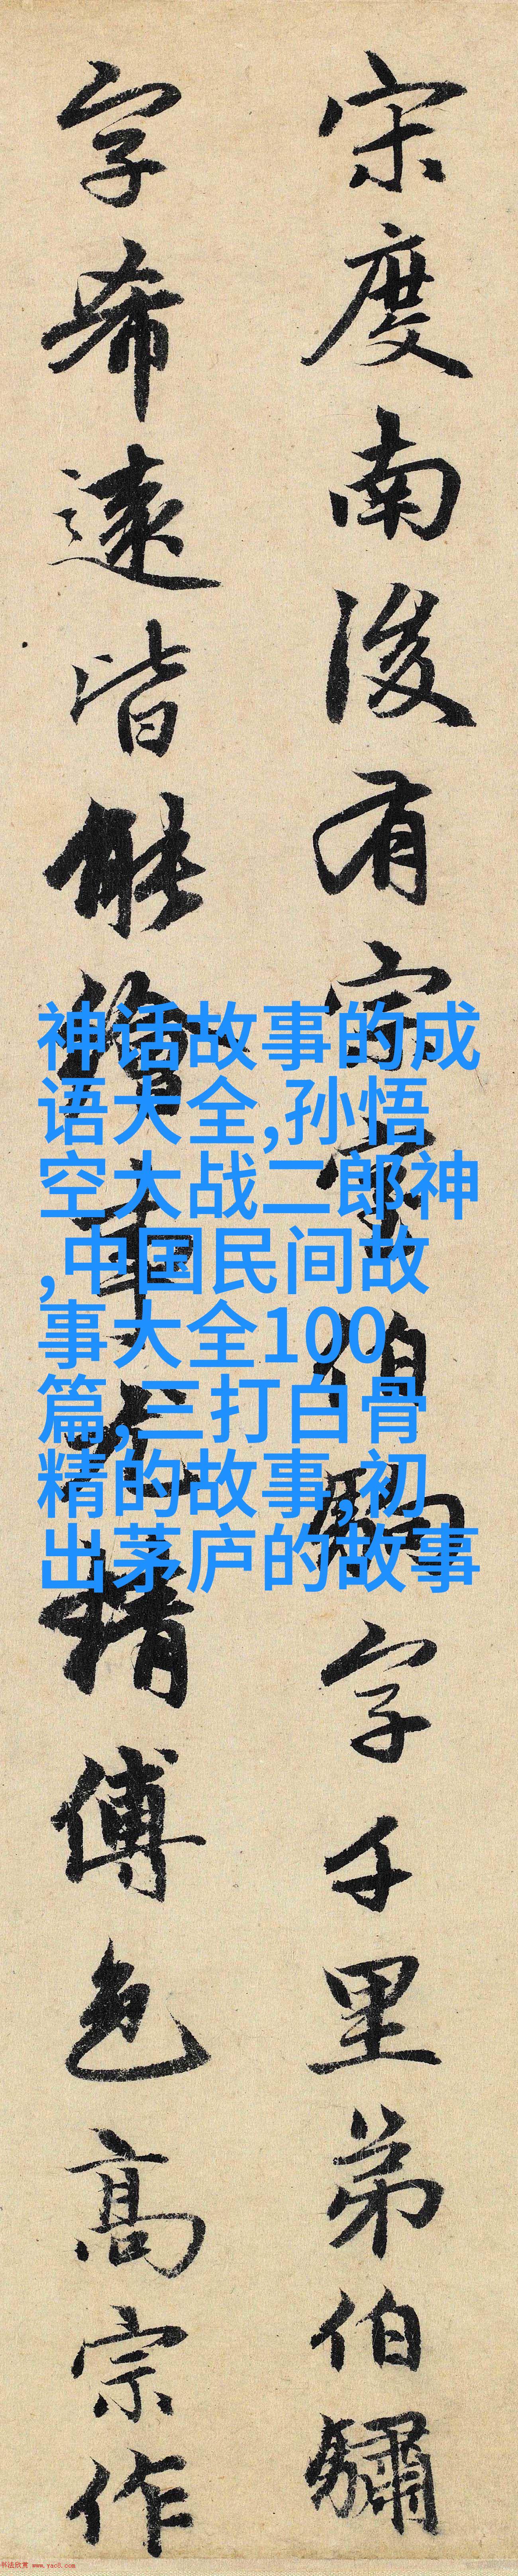 宋度南後有宗室伯駒字千里弟伯驌
字希遠皆能繪事尤精傅色高宗作
神话故事的成
语大全,孙悟
空大战二郎神
,中国民间故
事大全100
篇,三打白骨
精的故事,初
出茅庐的故事
书法欣赏 www.yac8.com